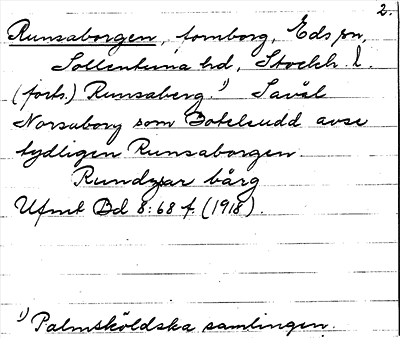 2.
Runsaborgen, fornborg, Eds sn,
Sollentuna hd, Stockh. l.
(forts.) Runsaberg.¹) Såväl
Norsaborg som Botelsudd avse
tydligen Runsaborgen.
Rundzar bårg
Ufmt Bd 8:68 f. (1918).
¹) Palmsköldska samlingen.